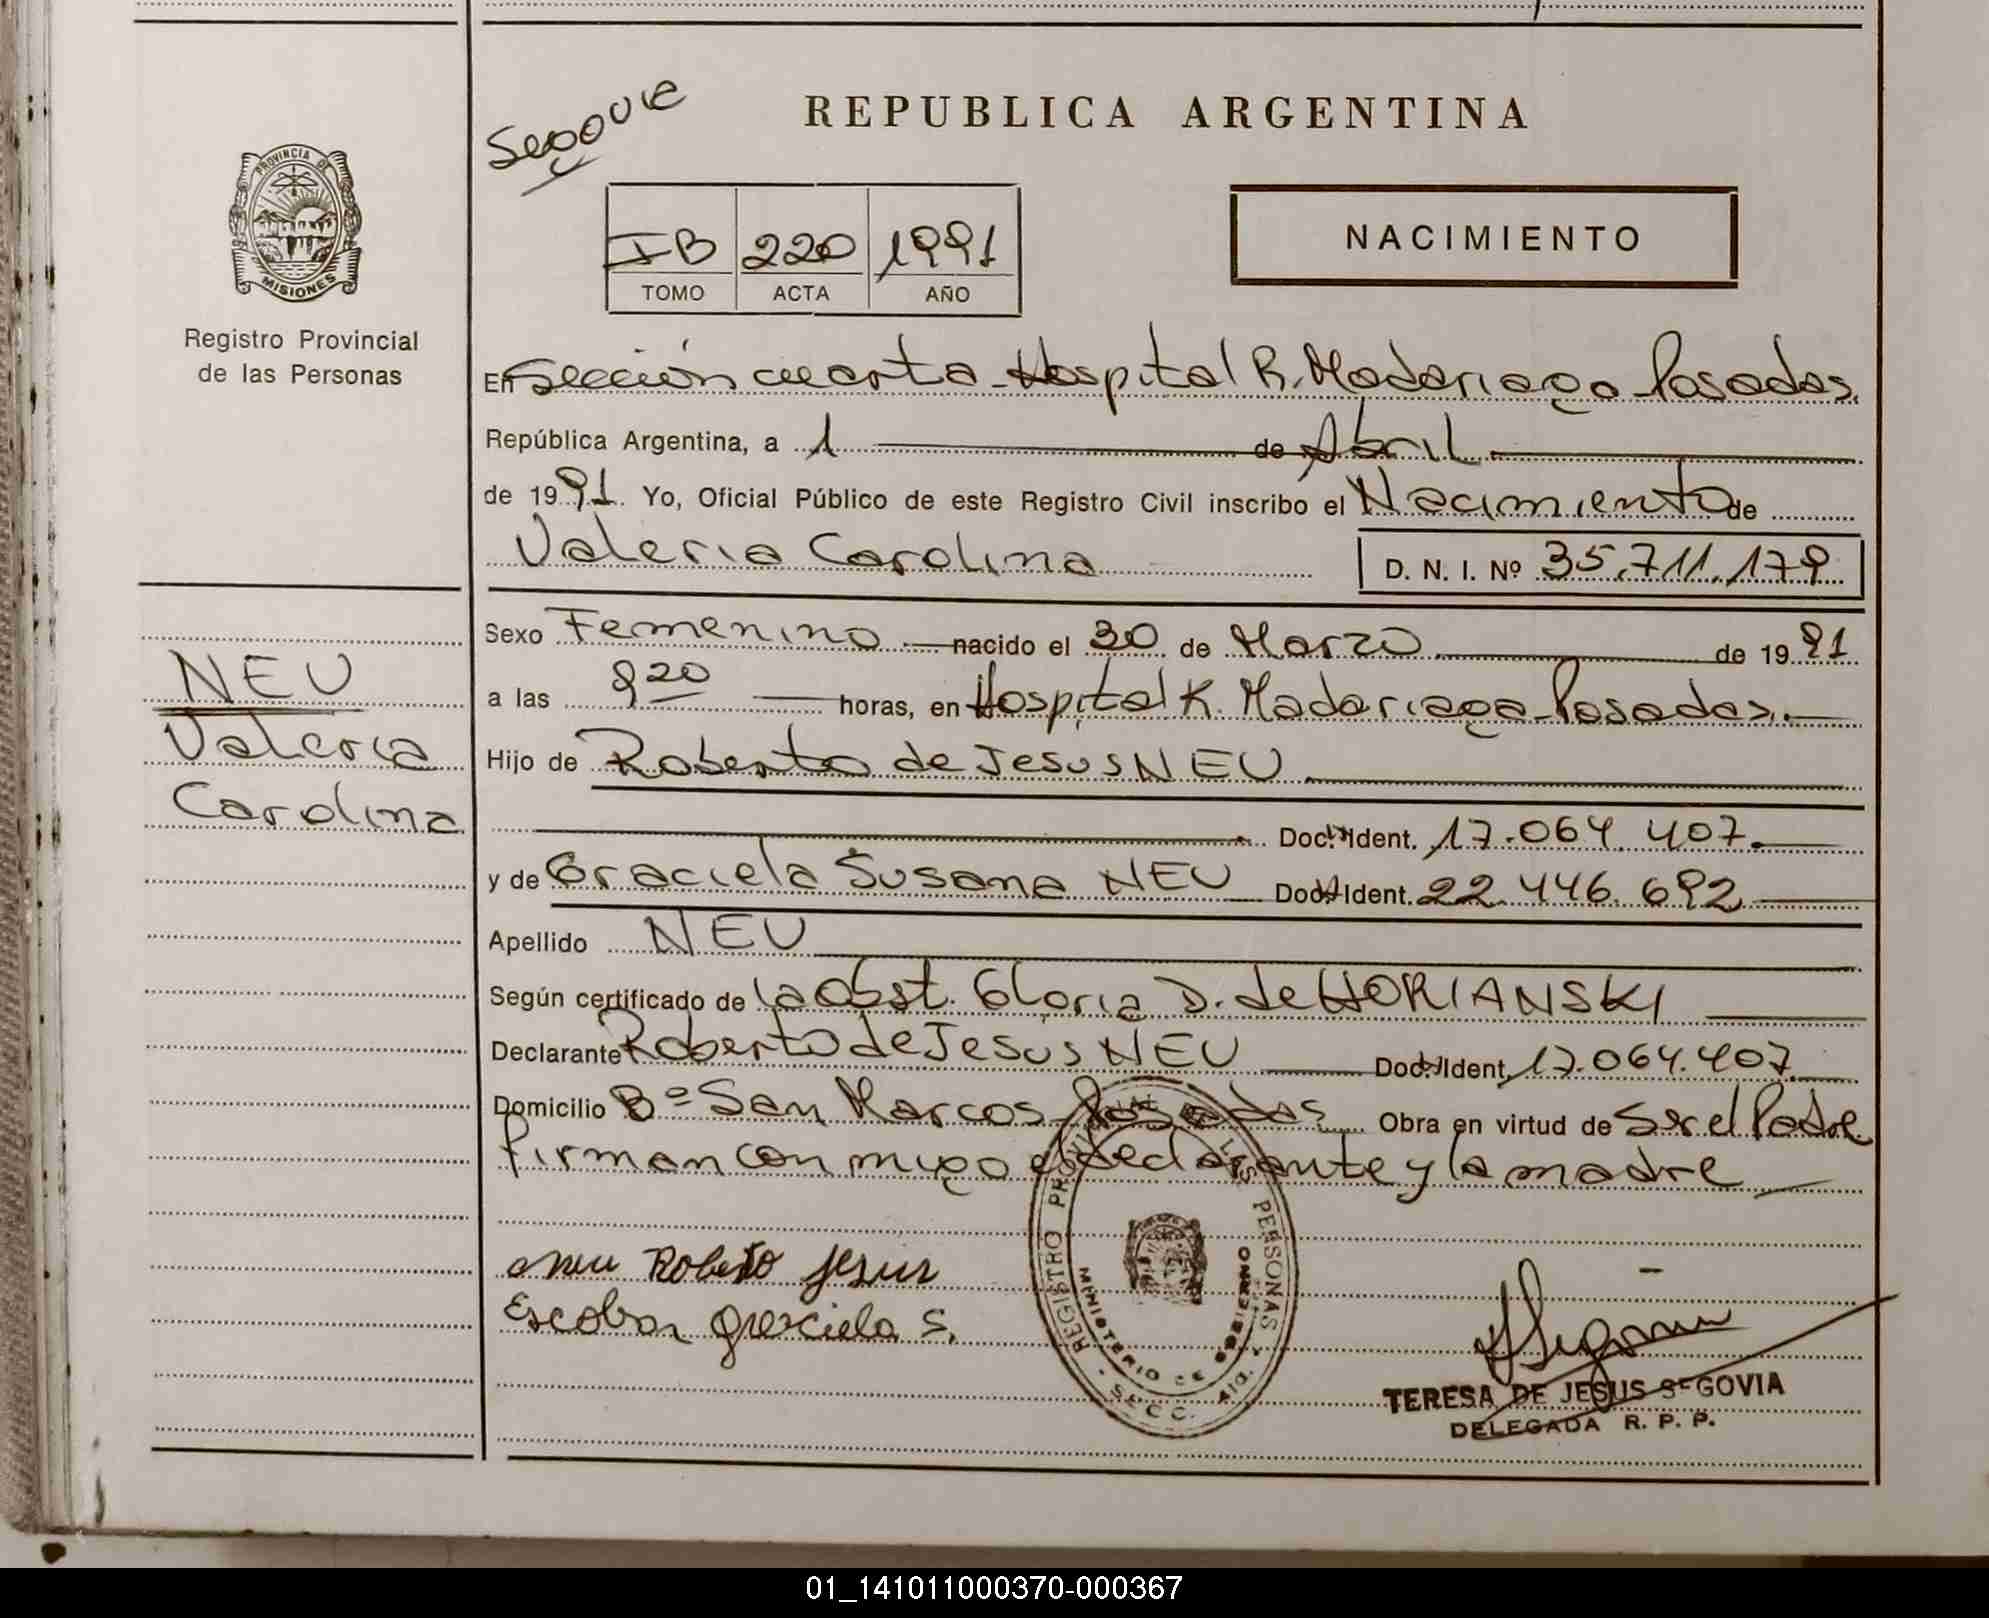 REPUBLICA ARGENTINA
PROVINCIA DE
MISIONES
Registro Provincial
de las Personas
IB 220 1991
TOMO ACTA AÑO
NACIMIENTO
En Sección cuarta - Hospital R. Madariaga - Posadas.
República Argentina, a 1 de Abril
de 1991 Yo, Oficial Público de este Registro Civil inscribo el Nacimiento de
Valeria Carolina D. N. I. Nº 35.711.179
NEU
Valeria
Carolina
Sexo Femenino nacido el 30 de Marzo de 1991
a las 9 20 horas, en Hospital R. Madariaga - Posadas.
Hijo de Roberto de Jesus NEU
Doc. Ident. 17.064.407.
y de Graciela Susana NEU Doc. Ident. 22.446.692
Apellido NEU
Según certificado de la Obst. Gloria D. de HORIANSKI
Declarante Roberto de Jesus NEU Doc. Ident. 17.064.407
Domicilio Bº San Marcos - Posadas Obra en virtud de Ser el Padre
Firman conmigo el declarante y la madre
Neu Roberto Jesus
Escobar Graciela S.
REGISTRO PROVINCIAL DE LAS PERSONAS
MINISTERIO DE GOBIERNO
SECC. 4ta.
TERESA DE JESUS SEGOVIA
DELEGADA R. P. P.
01_141011000370-000367